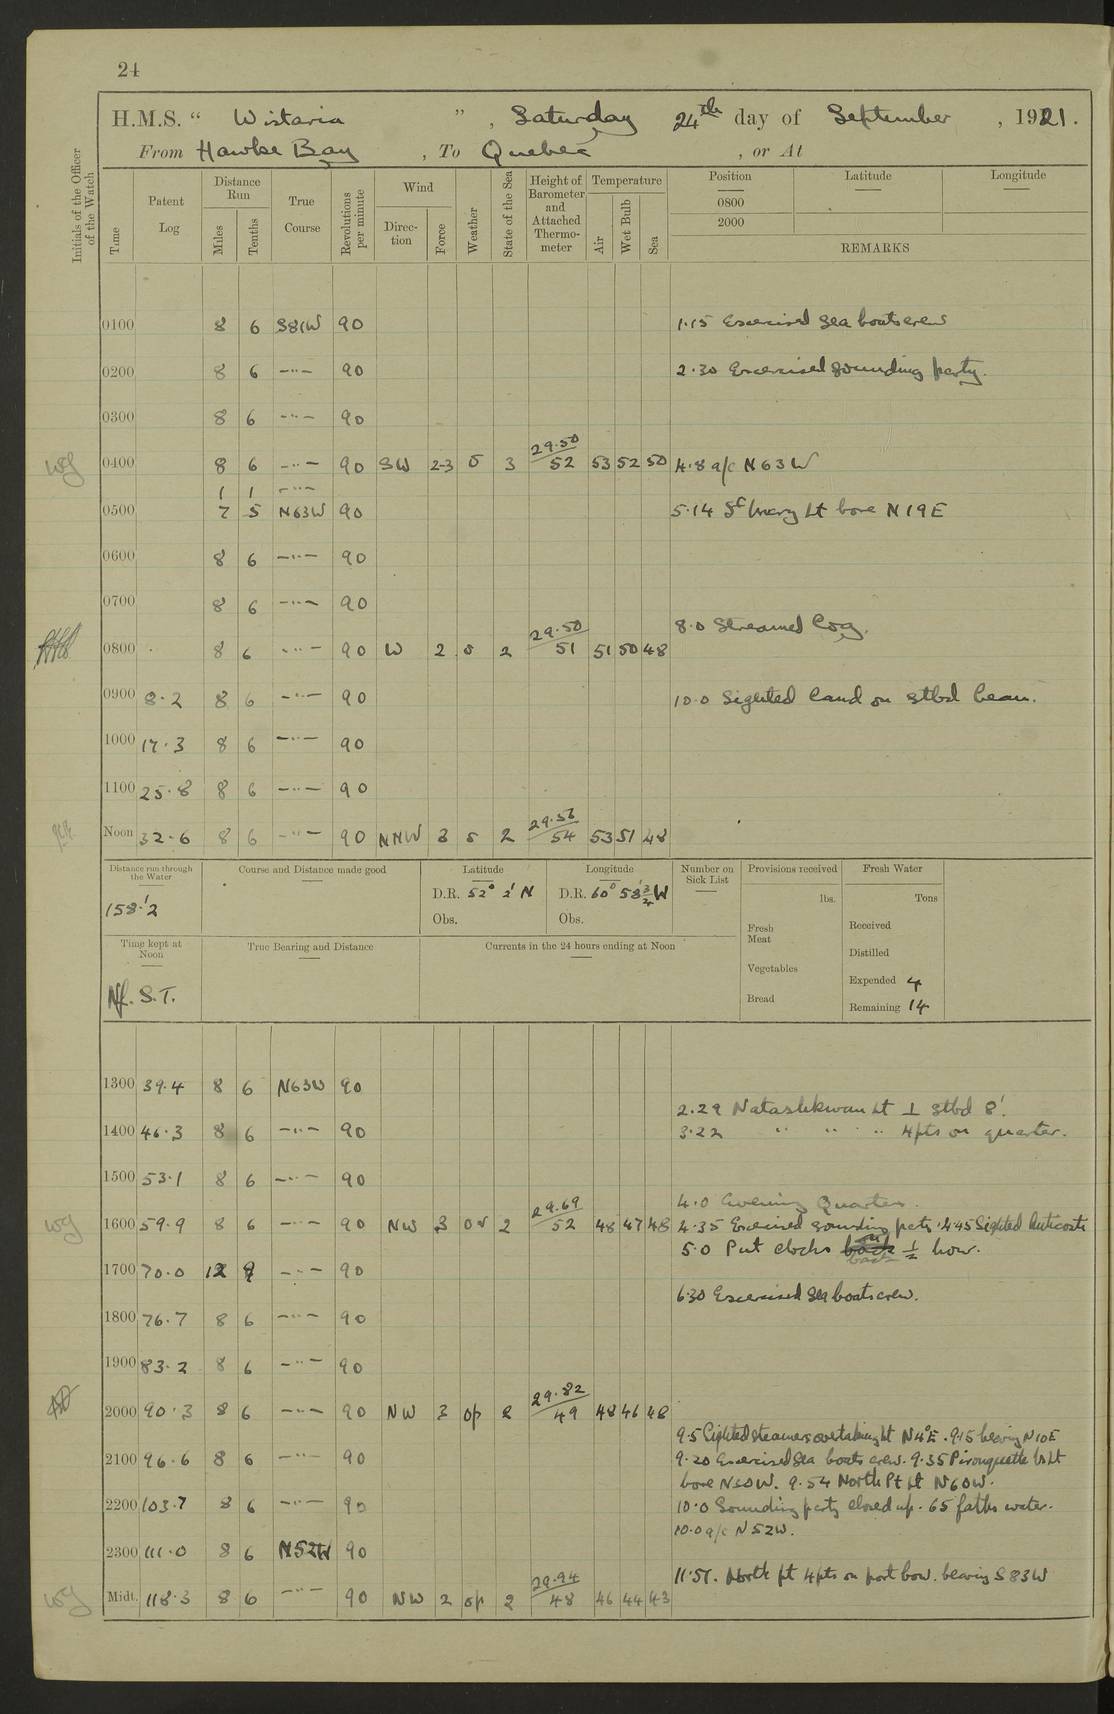 24
H.M.S. " Wistaria ", Saturday 24th day of September, 1921.
From Hawke Bay, To Quebec, or At
Initials of the Officer of the Watch
Time
Patent Log
Distance Run
Miles
Tenths
True Course
Revolutions per minute
Wind
Direction
Force
Weather
State of the Sea
Height of Barometer and Attached Thermometer
Temperature
Air
Wet Bulb
Sea
Position Latitude Longitude
0800
2000
REMARKS
0100 8 6 S81W 90 1.15 Exercised Sea boats crew
0200 8 6 —··— 90 2.30 Exercised sounding party.
0300 8 6 —··— 90
29.50
0400 8 6 —··— 90 SW 2-3 o 3 52 53 52 50 4.8 a/c N63W
1 1 —··—
0500 7 5 N63W 90 5.14 St Mary Lt bore N19E
0600 8 6 —··— 90
0700 8 6 —··— 90
29.50 8.0 Streamed Log.
0800 8 6 —··— 90 W 2 o 2 51 51 50 48
0900 8.2 8 6 —··— 90 10.0 Sighted land on stbd beam.
1000 17.3 8 6 —··— 90
1100 25.8 8 6 —··— 90
29.56
Noon 32.6 8 6 —··— 90 NNW 3 o 2 54 53 51 48
Distance run through the Water
158.'2
Course and Distance made good
Latitude
D.R. 52° 2' N
Obs.
Longitude
D.R. 60° 58'¾ W
Obs.
Number on Sick List
Provisions received
lbs.
Fresh Meat
Vegetables
Bread
Fresh Water
Tons
Received
Distilled
Expended 4
Remaining 14
Time kept at Noon
Nf. S.T.
True Bearing and Distance
Currents in the 24 hours ending at Noon
1300 39.4 8 6 N63W 90
2.29 Natashkwan Lt ⊥ stbd 8'.
1400 46.3 8 6 —··— 90 3.22 " " " 4pts on quarter.
1500 53.1 8 6 —··— 90
29.69 4.0 Evening Quarters.
1600 59.9 8 6 —··— 90 NW 3 2 52 48 47 48 4.35 Exercised sounding pty. 4.45 Sighted Anticosti
5.0 Put clocks back ½ hour.
1700 70.0 12 9 —··— 90
6.30 Exercised Sea boats crew.
1800 76.7 8 6 —··— 90
1900 83.2 8 6 —··— 90
29.82
2000 90.3 8 6 —··— 90 NW 3 op 2 49 48 46 48
9.5 Sighted steamers overtaking lt N4°E. 9.15 bearing N10E
2100 96.6 8 6 —··— 90 9.20 Exercised Sea boats crew. 9.35 Lt
bore N50W. 9.54 North Pt Lt N60W.
2200 103.7 8 6 —··— 90 10.0 Sounding party closed up. 65 faths water.
10.0 a/c N52W.
2300 111.0 8 6 N52W 90
29.94 11.57. North pt 4pts on port bow. bearing S83W
Midt. 118.3 8 6 —··— 90 NW 2 op 2 48 46 44 43